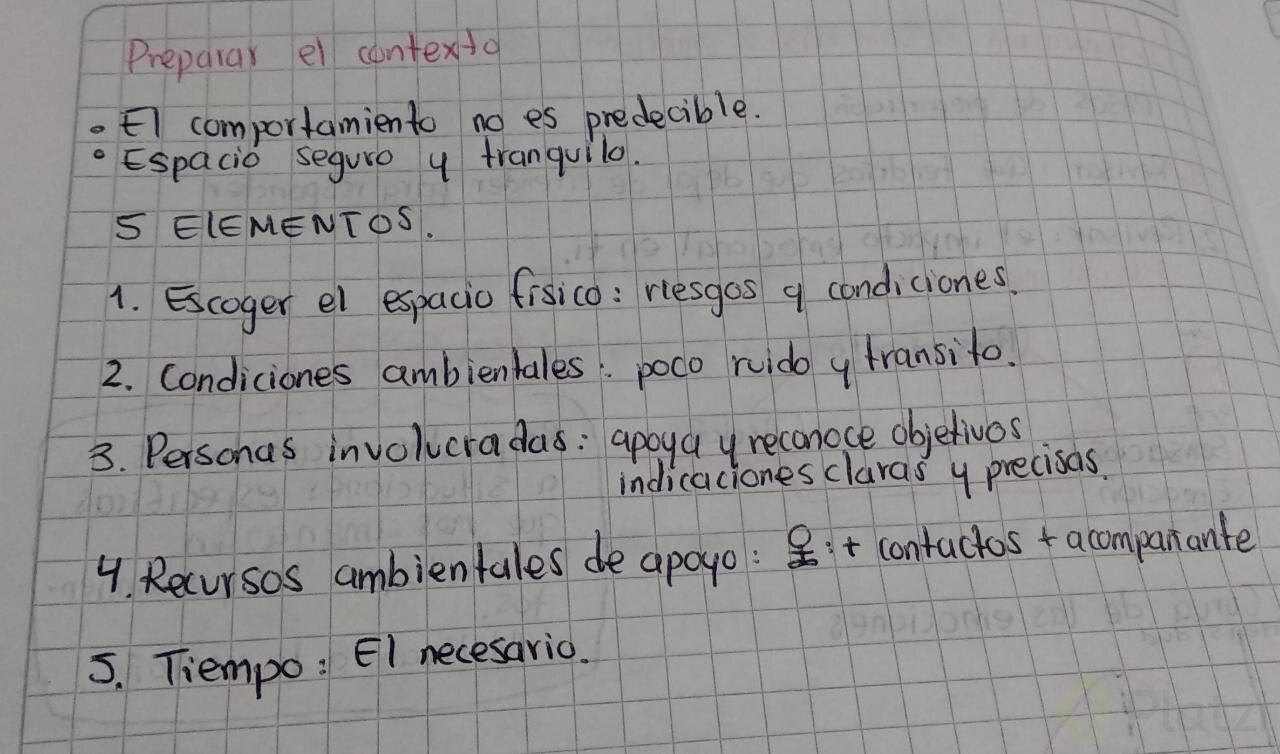 Preparar el contexto
• El comportamiento no es predecible.
• Espacio seguro y tranquilo.
5 ElEMENTOS.
1. Escoger el espacio físico: riesgos y condiciones.
2. Condiciones ambientales: poco ruido y transito.
3. Personas involucradas: apoya y reconoce objetivos
indicaciones claras y precisas.
4. Recursos ambientales de apoyo: : + contactos + acompañante
5. Tiempo: El necesario.
Platzi